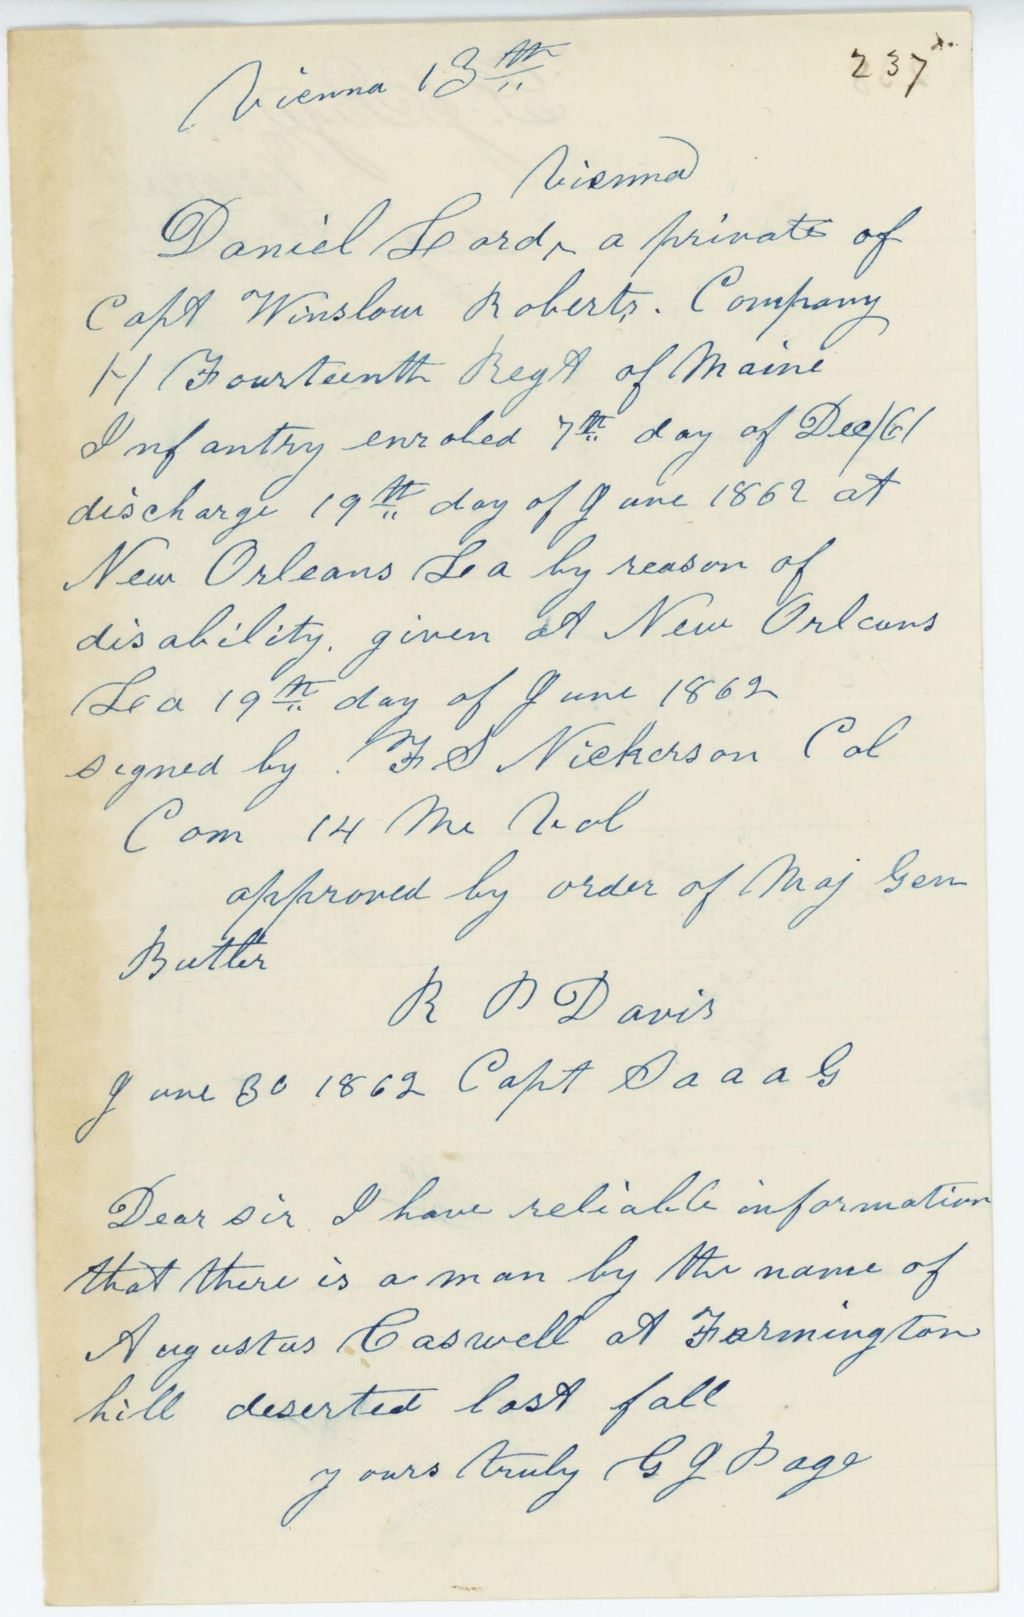 237
Vienna 13th
Vienna
Daniel Lord, a private of
Capt Winslow Roberts. Company
H Fourteenth Regt of Maine
Infantry enroled 7th day of Dec/61
discharge 19th day of June 1862 at
New Orleans La by reason of
disability. given at New Orleans
La 19th day of June 1862
signed by F S Nickerson Col
Com 14 Me Vol
approved by order of Maj Gen
Butler
R P Davis
June 30 1862 Capt &aaaG
Dear sir I have reliable information
that there is a man by the name of
Augustus Caswell at Farmington
hill deserted last fall
yours truly G J Page